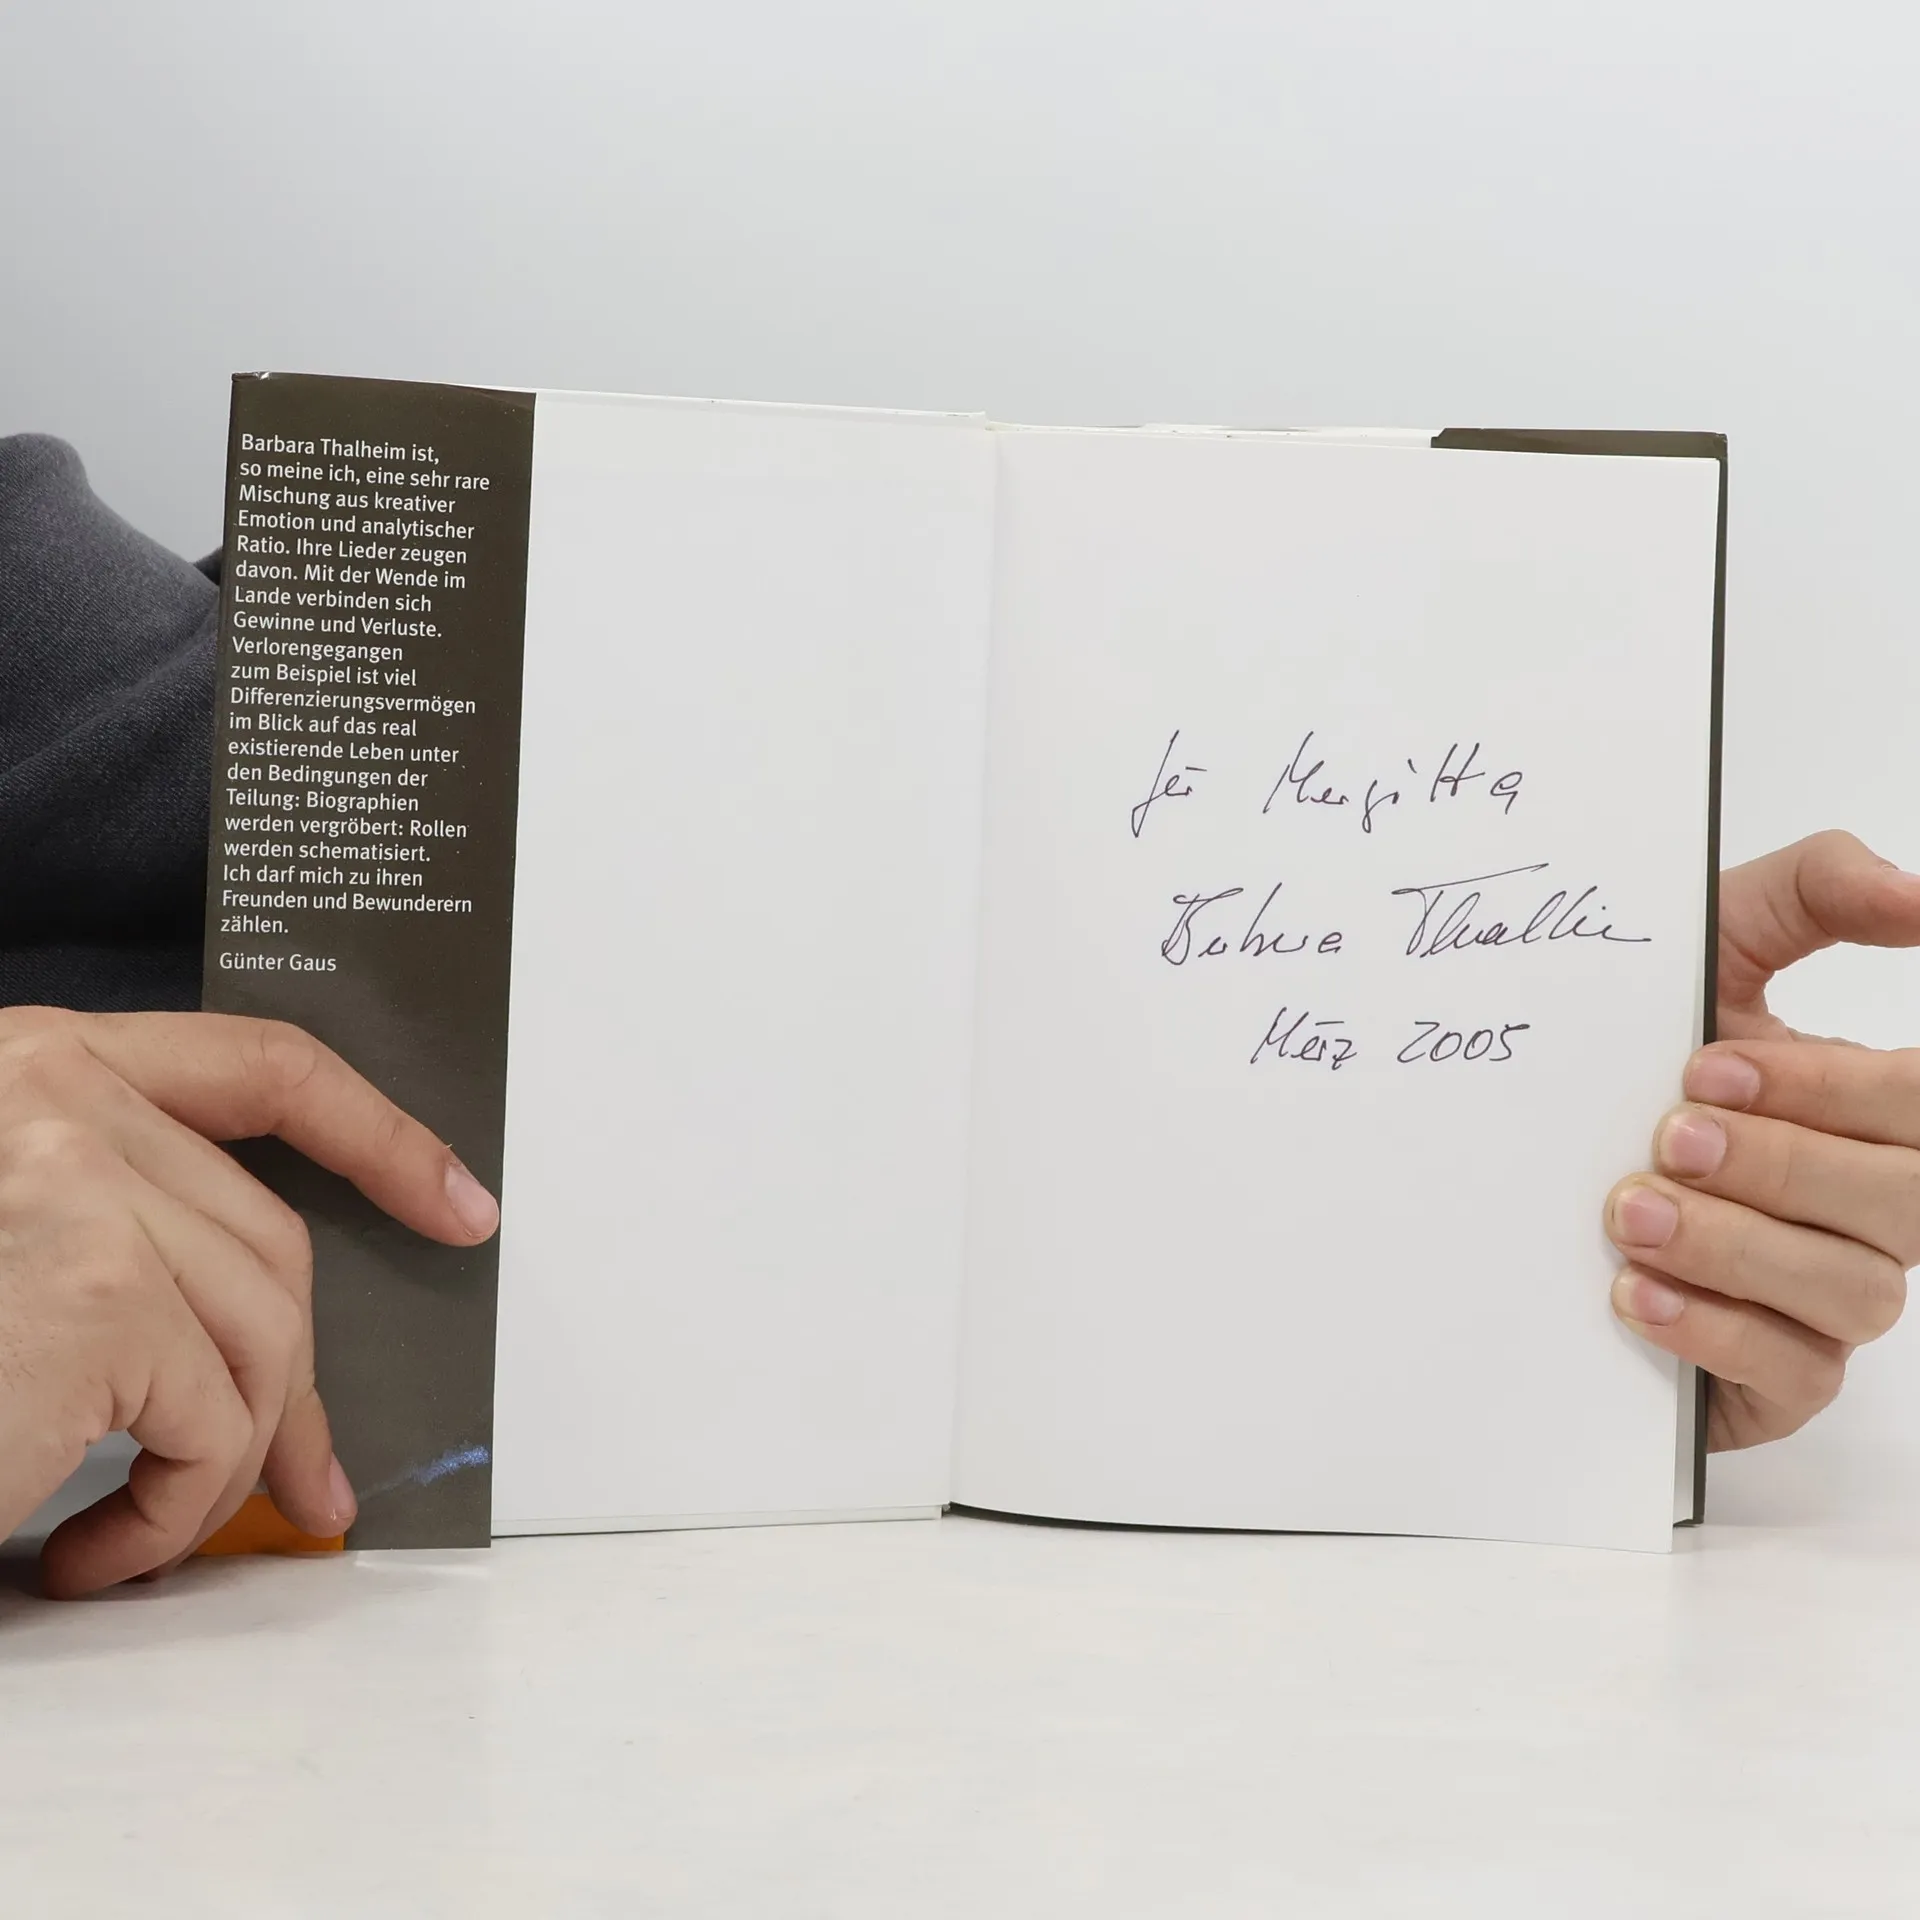 Barbara Thalheim ist,
so meine ich, eine sehr rare
Mischung aus kreativer
Emotion und analytischer
Ratio. Ihre Lieder zeugen
davon. Mit der Wende im
Lande verbinden sich
Gewinne und Verluste.
Verlorengegangen
zum Beispiel ist viel
Differenzierungsvermögen
im Blick auf das real
existierende Leben unter
den Bedingungen der
Teilung: Biographien
werden vergröbert: Rollen
werden schematisiert.
Ich darf mich zu ihren
Freunden und Bewunderern
zählen.
Günter Gaus
für Margitta
Barbara Thalheim
März 2005